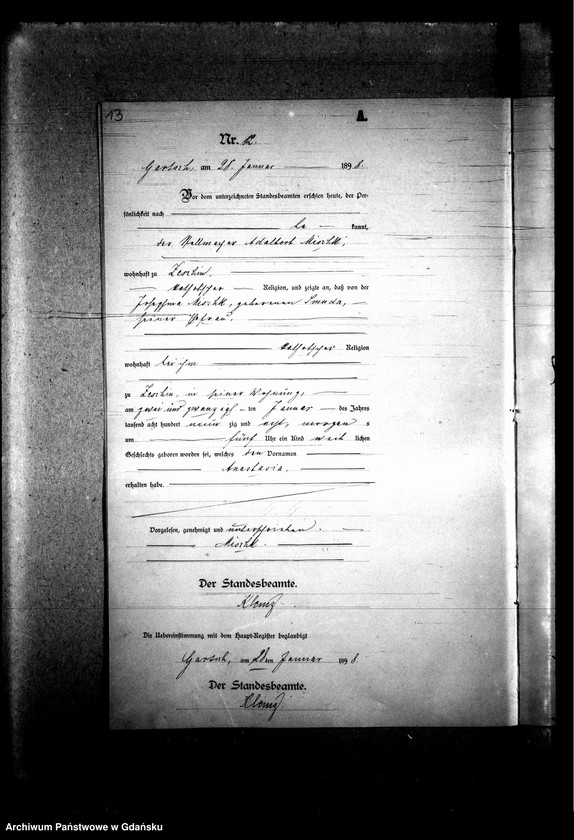 13
A.
Nr. 12.
Gartsch am 28. Januar 1898.
Vor dem unterzeichneten Standesbeamten erschien heute, der Per-
sönlichkeit nach
be kannt,
der Stellmacher Adalbert Mischk,
wohnhaft zu
katholischer Religion, und zeigte an, daß von der
Josephina Mischk, geborenen Smuda,
seiner Ehefrau,
katholischer Religion
wohnhaft bei ihm
zu in seiner Wohnung,
am zwei und zwanzigsten Januar des Jahres
tausend acht hundert neunzig und acht, morgens
um fünf Uhr ein Kind weiblichen
Geschlechts geboren worden sei, welches den Vornamen
Anastasia
erhalten habe.
Vorgelesen, genehmigt und unterschrieben.
Mischk.
Der Standesbeamte.
Die Uebereinstimmung mit dem Haupt-Register beglaubigt
Gartsch, am 28ten Januar 1898.
Der Standesbeamte.
Archiwum Państwowe w Gdańsku